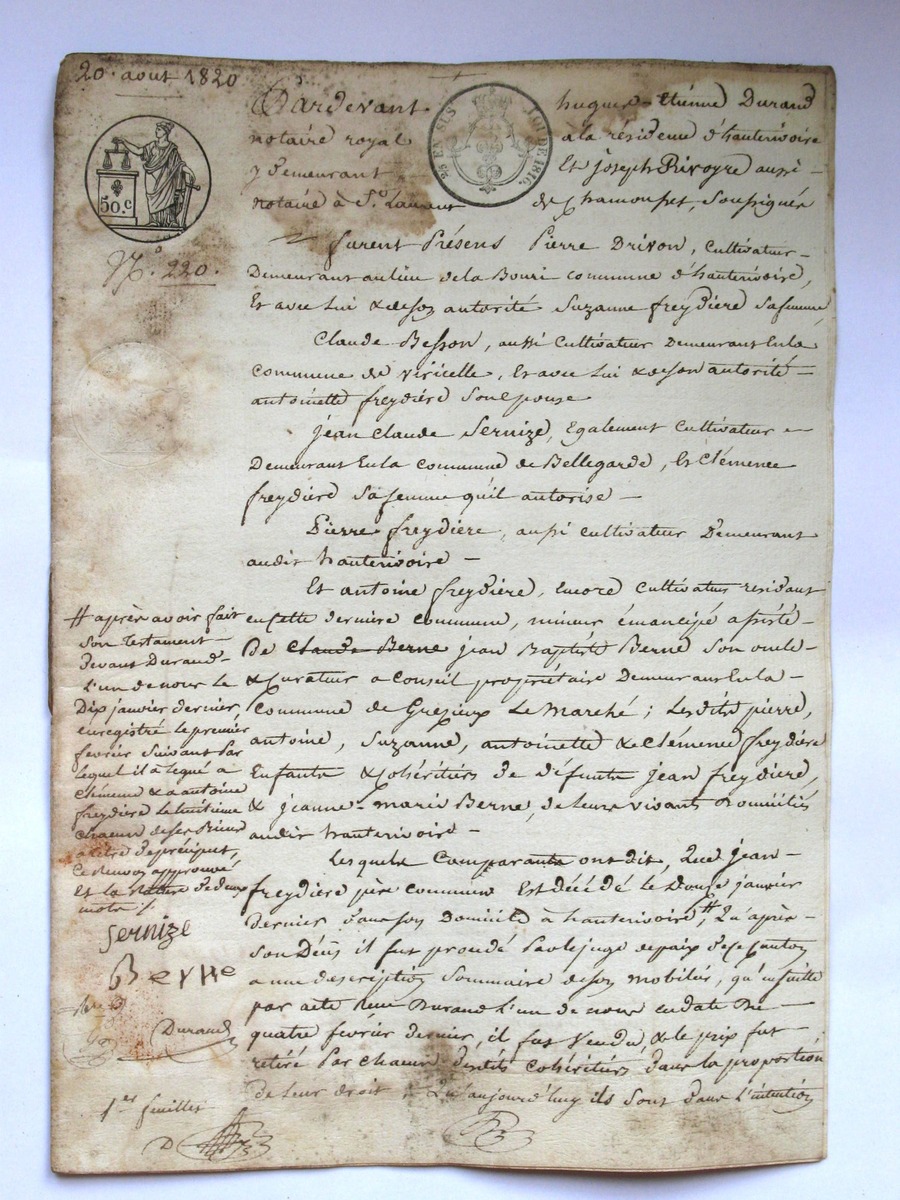 20 aout 1820
Pardevant hugues-Etienne Durand
notaire royal à la résidence d'hauterivoire
y demeurant Et joseph Privoyre aussi
notaire à St. Laurent de Chamousset, Soussignés
50.c
LOI DE 1816.
N.º 220.
furent Présens Pierre Drivon, cultivateur
Demeurant au lieu de la Bouri commune d'hauterivoire,
Et avec lui & de son autorité Suzanne freydiere Sa femme,
Claude Besson, aussi Cultivateur Demeurant En la
Commune de viricelle, Et avec Lui & de son autorité
antoinette freydiére Son épouse
jean Claude Sernize, Egalement Cultivateur
Demeurant En la commune de Bellegarde, Et Clémence
freydiere Sa femme qu'il autorise
Pierre freydiére, aussi cultivateur Demeurant
audit hauterivoire
Et antoine freydiére, Encore Cultivateur résidant
en cette derniere commune, mineur émancipé assisté
De Claude Berne jean Baptiste Berne Son oncle
& Curateur a Conseil propriétaire Demeurant En la
Commune de Grezieux Le Marché; Lesdits pierre,
antoine, Suzanne, antoinette & Clémence freydiére
Enfants & Cohéritiers de défunts jean freydiére,
& jeanne-marie Berne, de leurs vivants Domiciliés
audit hauterivoire
Lesquels Comparants ont dit, Que jean
freydiére père commun Est décédé le Douze janvier
Dernier dans son domicile à hauterivoire,# Qu'après
Son Décès il fut procédé Par le juge de paix de ce canton
a une description Sommaire de son mobilier, qu'ensuite
par acte Reçu Durand L'un de nous en date Du
quatre fevrier dernier, il fut vendu, & le prix fut
retiré Par chacun desdits Cohéritiers dans la proportion
de Leur droit; Qu'aujourd'huy ils Sont dans L'intention
# après avoir fait
Son Testament
devant Durand
L'un de nous le
Dix janvier dernier,
enregistré le premier
fevrier Suivant Par
lequel il a légué a
Clémence & a antoine
freydiere le huitième
chacun de ses Biens
a titre de préciput,
Ce Renvoi approuvé
Et la Rature de deux
mots /.
Sernize
Berne
Durand
1er feuillet